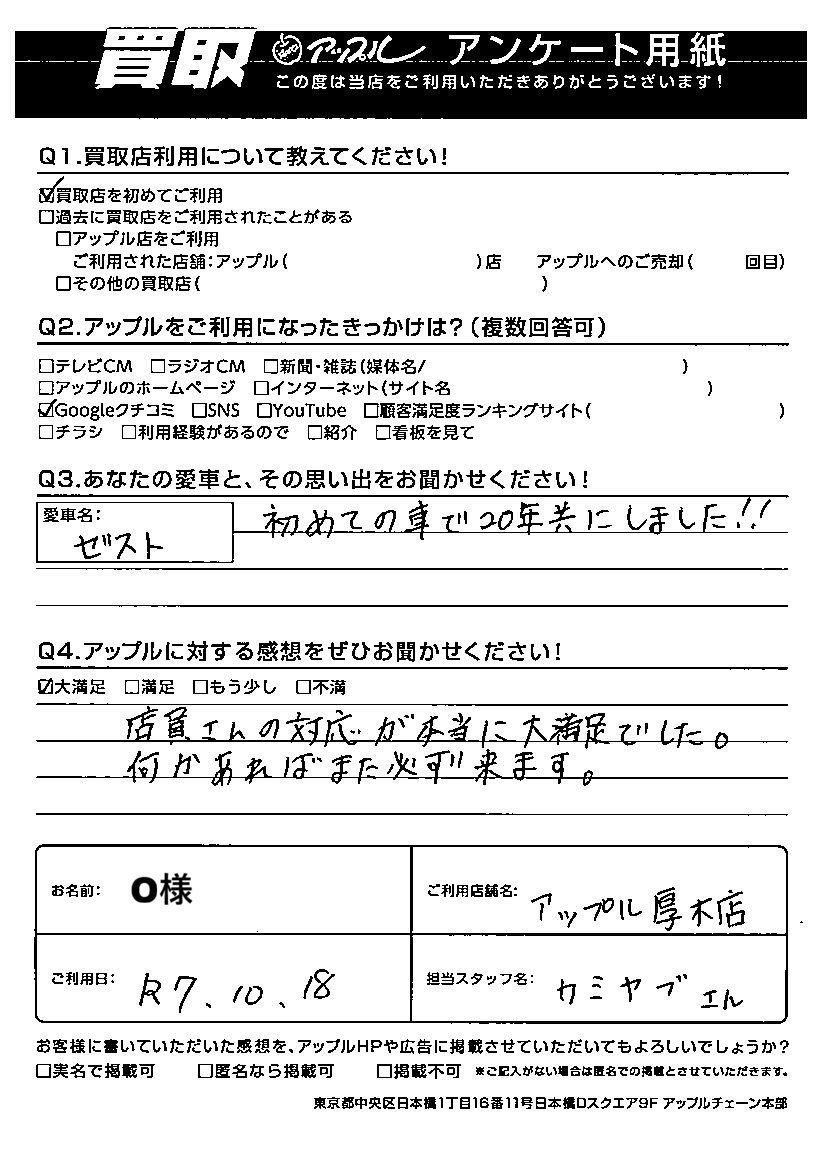 買取 アップル アンケート用紙
この度は当店をご利用いただきありがとうございます!
Q1.買取店利用について教えてください!
☑買取店を初めてご利用
□過去に買取店をご利用されたことがある
□アップル店をご利用
ご利用された店舗:アップル( )店 アップルへのご売却( 回目)
□その他の買取店( )
Q2.アップルをご利用になったきっかけは?(複数回答可)
□テレビCM □ラジオCM □新聞・雑誌(媒体名/ )
□アップルのホームページ □インターネット(サイト名 )
☑Googleクチコミ □SNS □YouTube □顧客満足度ランキングサイト( )
□チラシ □利用経験があるので □紹介 □看板を見て
Q3.あなたの愛車と、その思い出をお聞かせください!
愛車名:
ゼスト
初めての車で20年共にしました!!
Q4.アップルに対する感想をぜひお聞かせください!
☑大満足 □満足 □もう少し □不満
店員さんの対応が本当に大満足でした。
何かあればまた必ず来ます。
お名前: O様
ご利用店舗名: アップル厚木店
ご利用日: R7.10.18
担当スタッフ名: カミヤブさん
お客様に書いていただいた感想を、アップルHPや広告に掲載させていただいてもよろしいでしょうか?
□実名で掲載可 □匿名なら掲載可 □掲載不可 ※ご記入がない場合は匿名での掲載とさせていただきます。
東京都中央区日本橋1丁目16番11号日本橋Dスクエア9F アップルチェーン本部